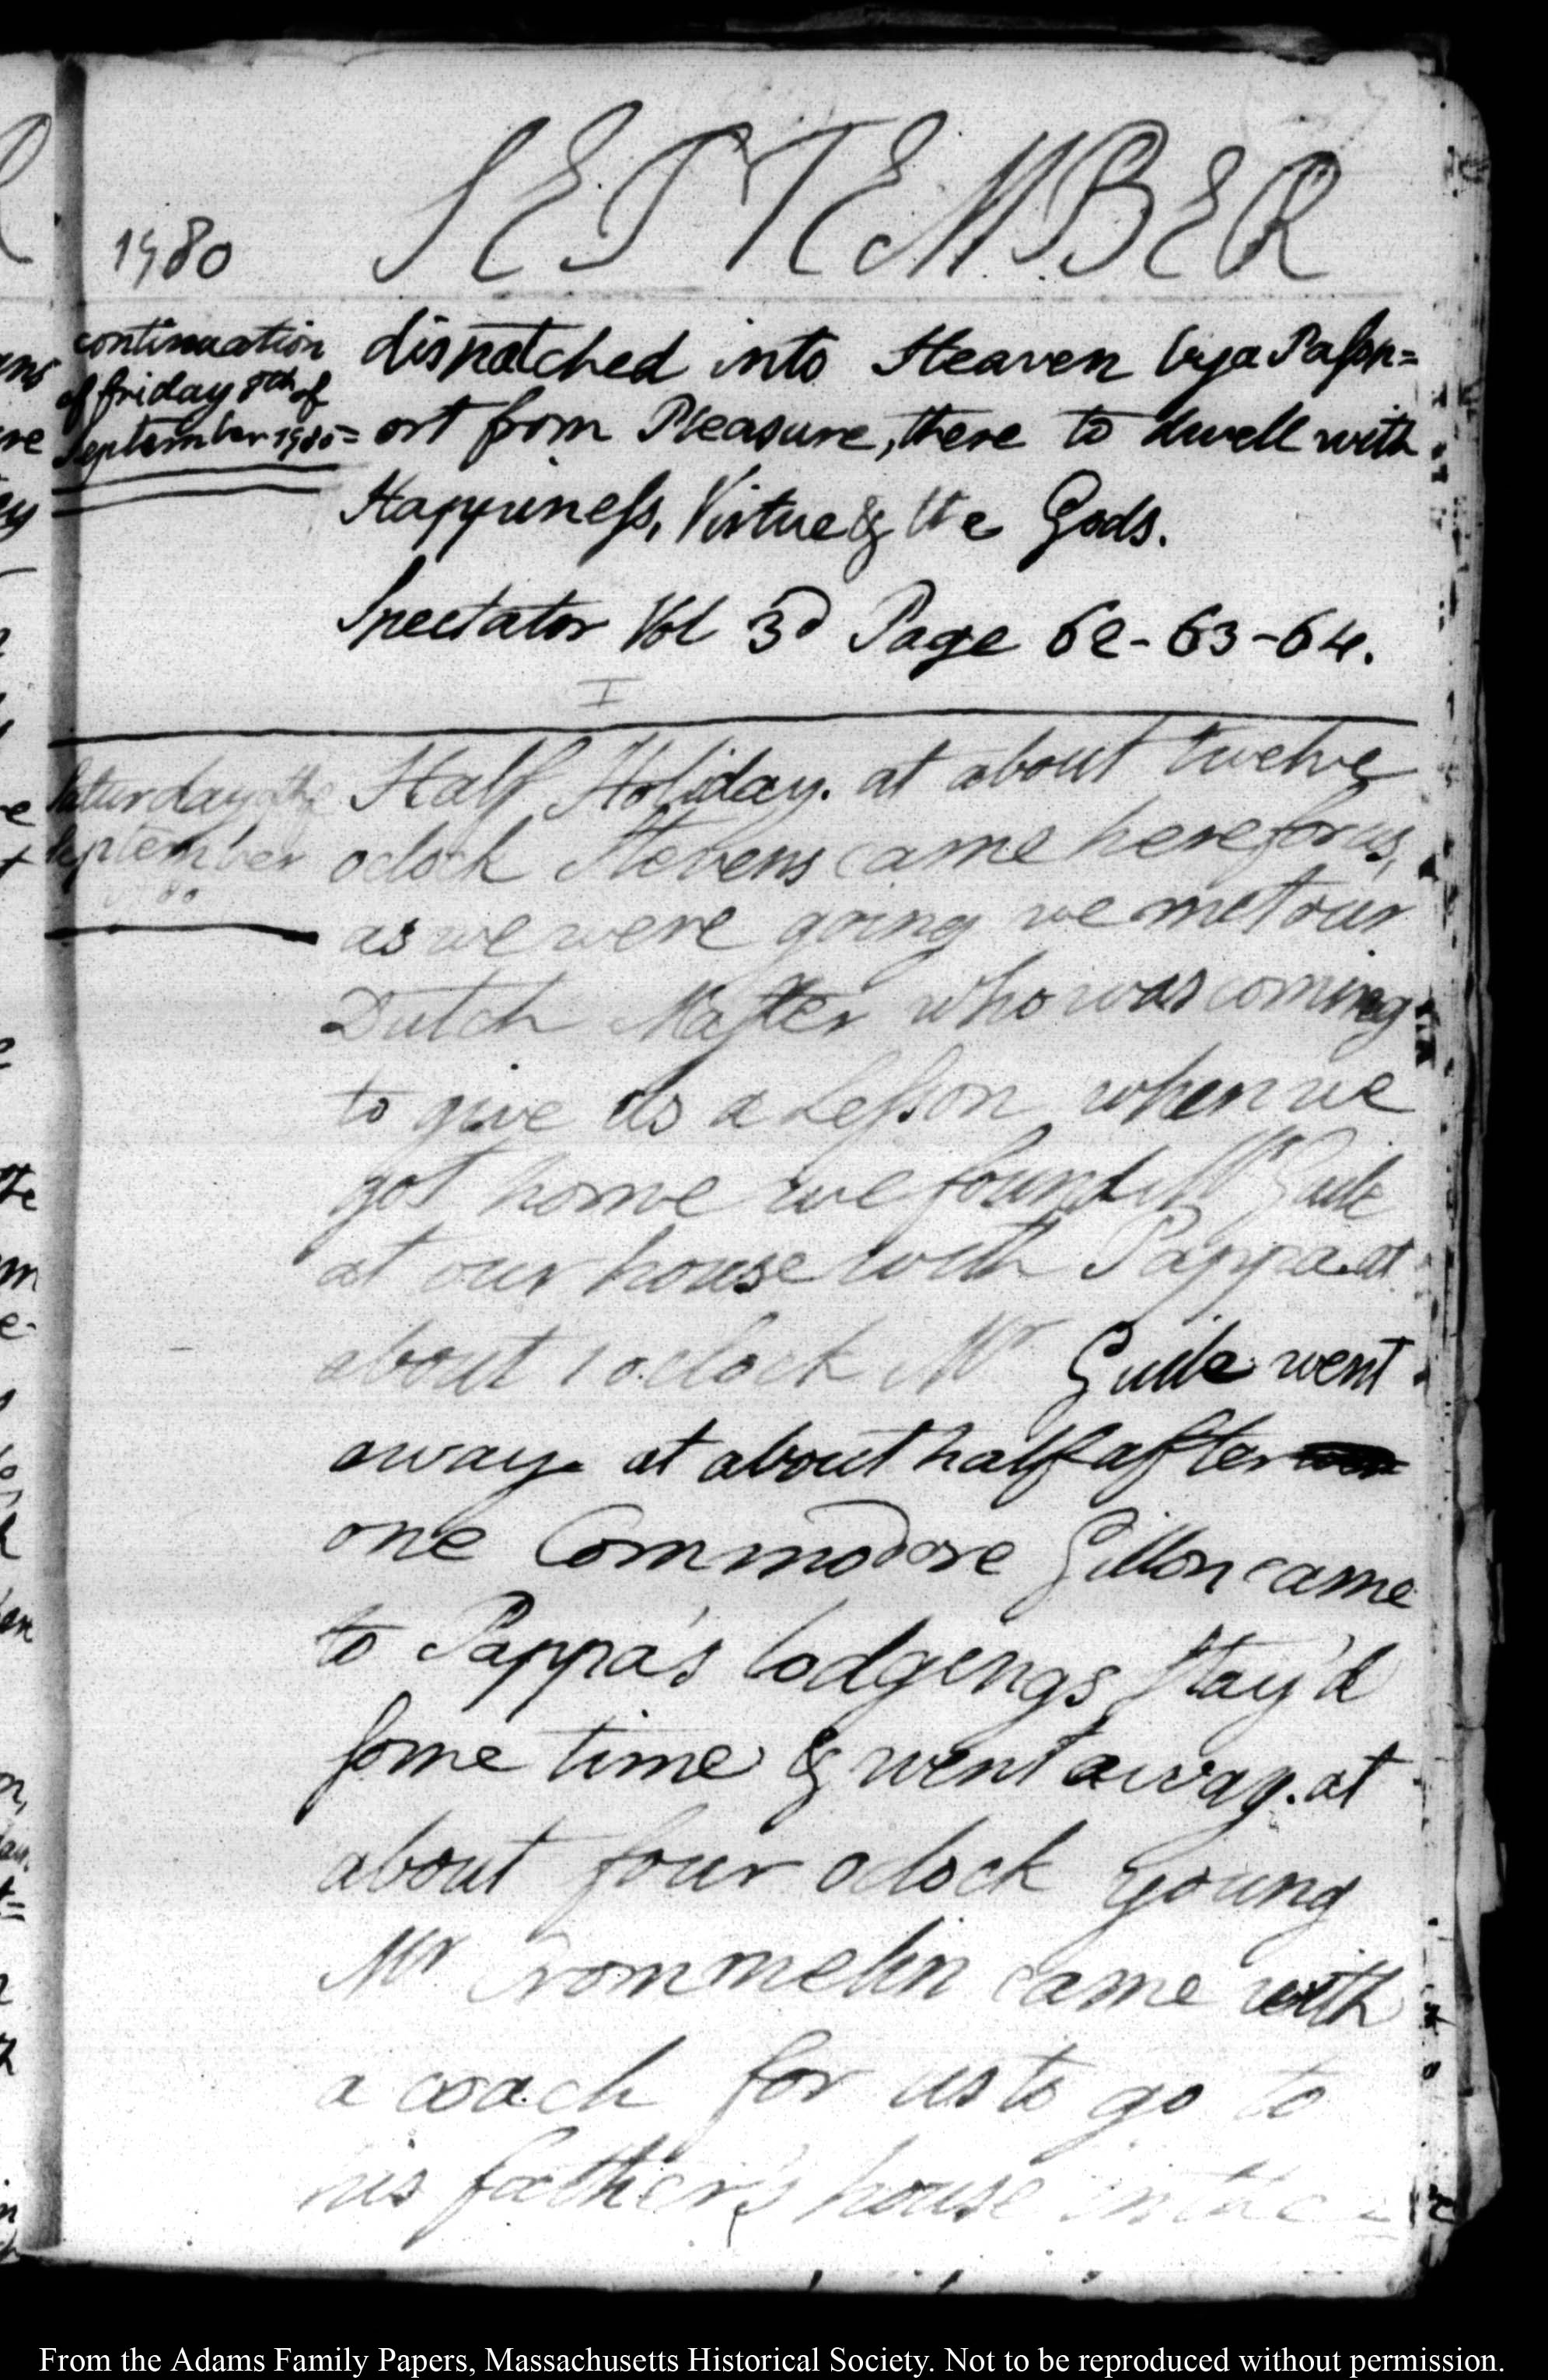 SEPTEMBER
1780
continuation
of friday 8th of
September 1780=
dispatched into Heaven by a Passp=
ort from Pleasure, there to dwell with
Happiness, Virtue & the Gods.
Spectator Vol 3d Page 62-63-64.
Saturday 9the
September
80
Half Holiday. at about twelve
oclock Stevens came here for us,
as we were going we met our
Dutch Master who was coming
to give us a Lesson when we
got home we found Mr Guile
at our house with Pappa. at
about 1 oclock Mr Guile went
away. at about half after
one Commodore Gillon came
to Pappa's lodgings stay'd
some time & went away. at
about four oclock young
Mr Crommelin came with
a coach for us to go to
his father's house in the
From the Adams Family Papers, Massachusetts Historical Society. Not to be reproduced without permission.